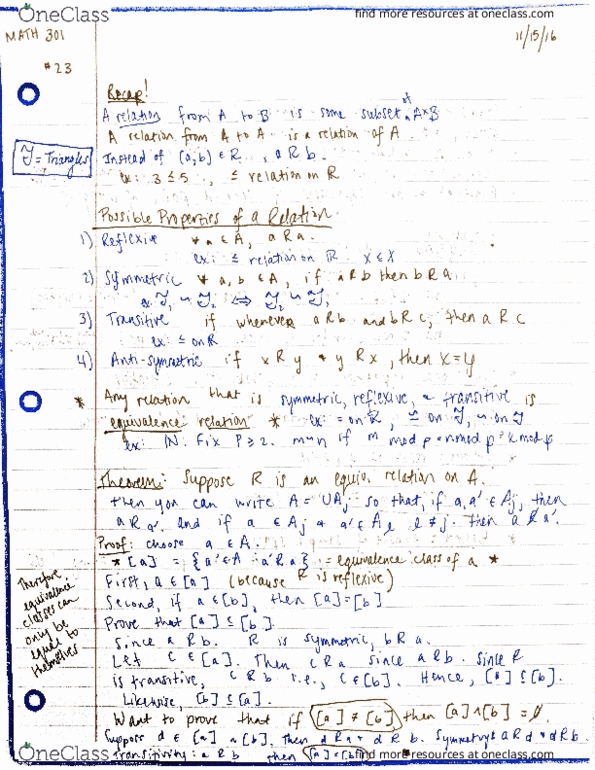 OneClass
find more resources at oneclass.com
MATH 301
11/15/16
#23
Recap!
A relation from A to B is some subset of A×B
A relation from A to A is a relation of A
𝒯 = Triangles
Instead of (a,b) ∈ R, a R b.
ex: 3 ≤ 5, ≤ relation on ℝ
Possible Properties of a Relation
1) Reflexive ∀ a ∈ A, a R a.
ex: ≤ relation on ℝ x ≤ x
2) Symmetric ∀ a, b ∈ A, if a R b then b R a
ex: 𝒯₁ ~ 𝒯₂ ⟺ 𝒯₂ ~ 𝒯₁
3) Transitive if whenever a R b and b R c, then a R c
ex: ≤ on ℝ
4) Anti-symmetric if x R y + y R x, then x = y
* Any relation that is symmetric, reflexive, + transitive is
equivalence relation * ex: = on ℝ, ≅ on 𝒯, ~ on 𝒯
ex: ℕ. Fix p ≥ 2. m~n if m mod p = n mod p
Theorem: Suppose R is an equiv. relation on A.
then you can write A = ∪Aⱼ so that, if a, a' ∈ Aⱼ, then
a R a'. And if a ∈ Aⱼ + a' ∈ Aₗ l ≠ j. then a R̸ a'.
Proof: choose a ∈ A.
* [a] = {a' ∈ A : a' R a} = equivalence class of a *
First, a ∈ [a] (because R is reflexive)
Second, if a ∈ [b], then [a] = [b]
Therefore equivalence classes can only be equal to themselves
Prove that [a] ⊆ [b].
Since a R b. R is symmetric, b R a.
Let c ∈ [a]. Then c R a since a R b. Since R
is transitive, c R b i.e., c ∈ [b]. Hence, [a] ⊆ [b].
Likewise, [b] ⊆ [a].
Want to prove that if [a] ≠ [b] then [a] ∩ [b] = ∅.
Suppose d ∈ [a] ∩ [b]. Then d R a + d R b. Symmetry: a R d + d R b.
Transitivity: a R b then [a] = [b]
OneClass
find more resources at oneclass.com